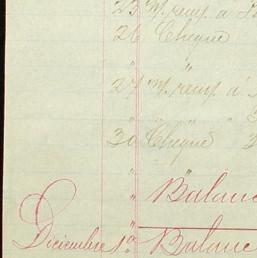 23 " remp. a
26 Cheque
" "
27 " remp. a
" " " "
30 Cheque 3
"
" Balanc
Diciembre 1º Balanc